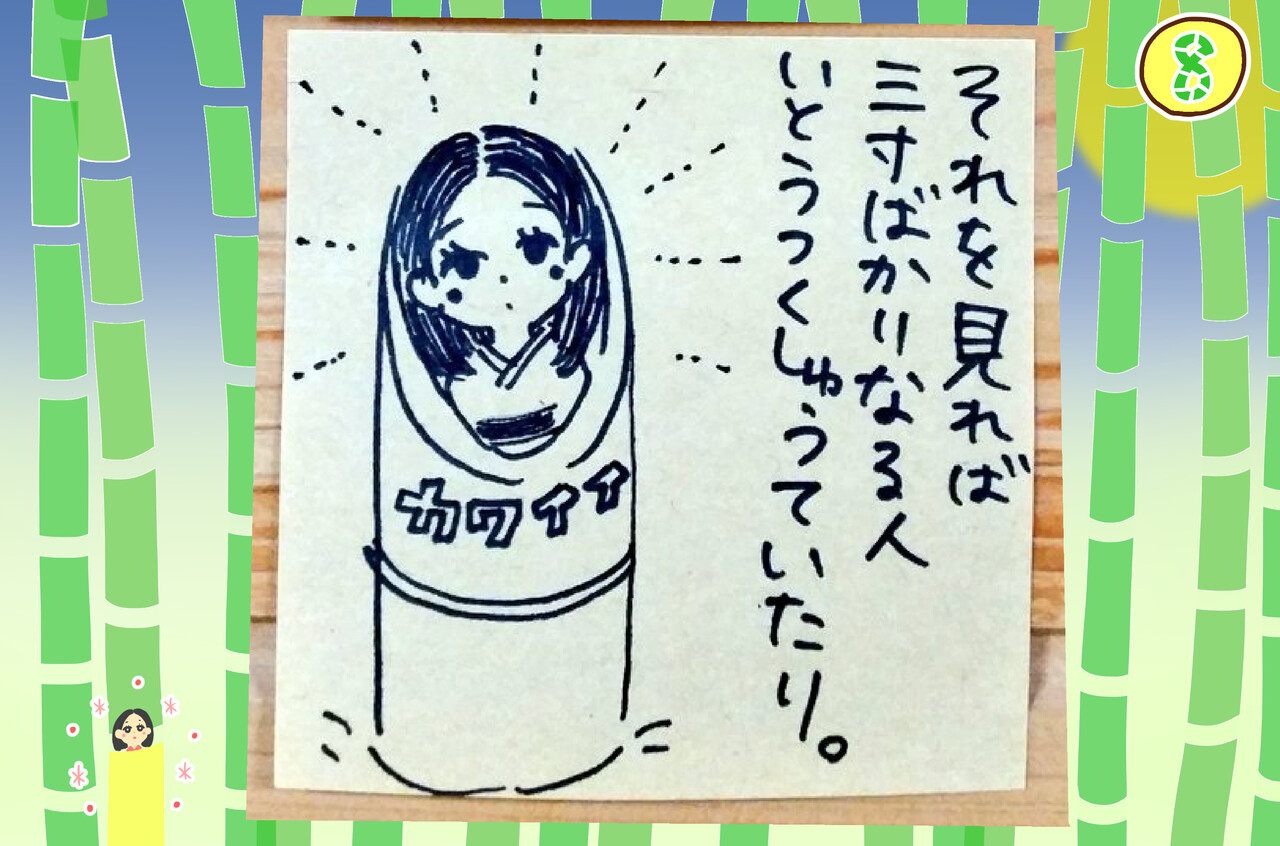 それを見れば
三寸ばかりなる人
いとうつくしゅうていたり。
カワイイ
8